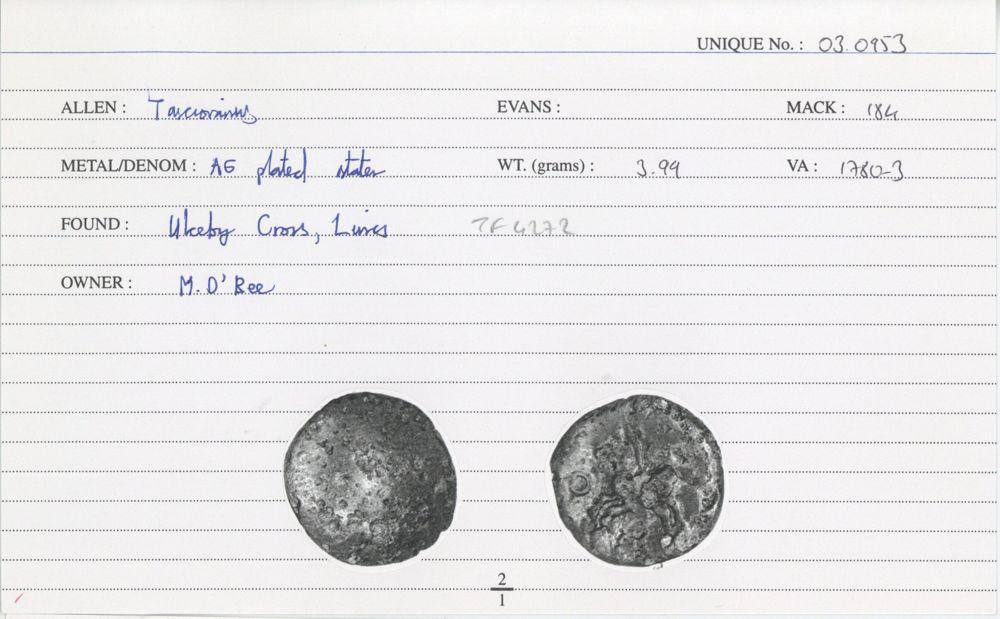 UNIQUE No. : 03.0953
ALLEN : Tasciovanus EVANS : MACK : 184
METAL/DENOM : AE plated stater WT. (grams) : 3.99 VA : 1780-3
FOUND : Ulceby Cross, Lincs TF 4272
OWNER : M. D' Bee
2
1